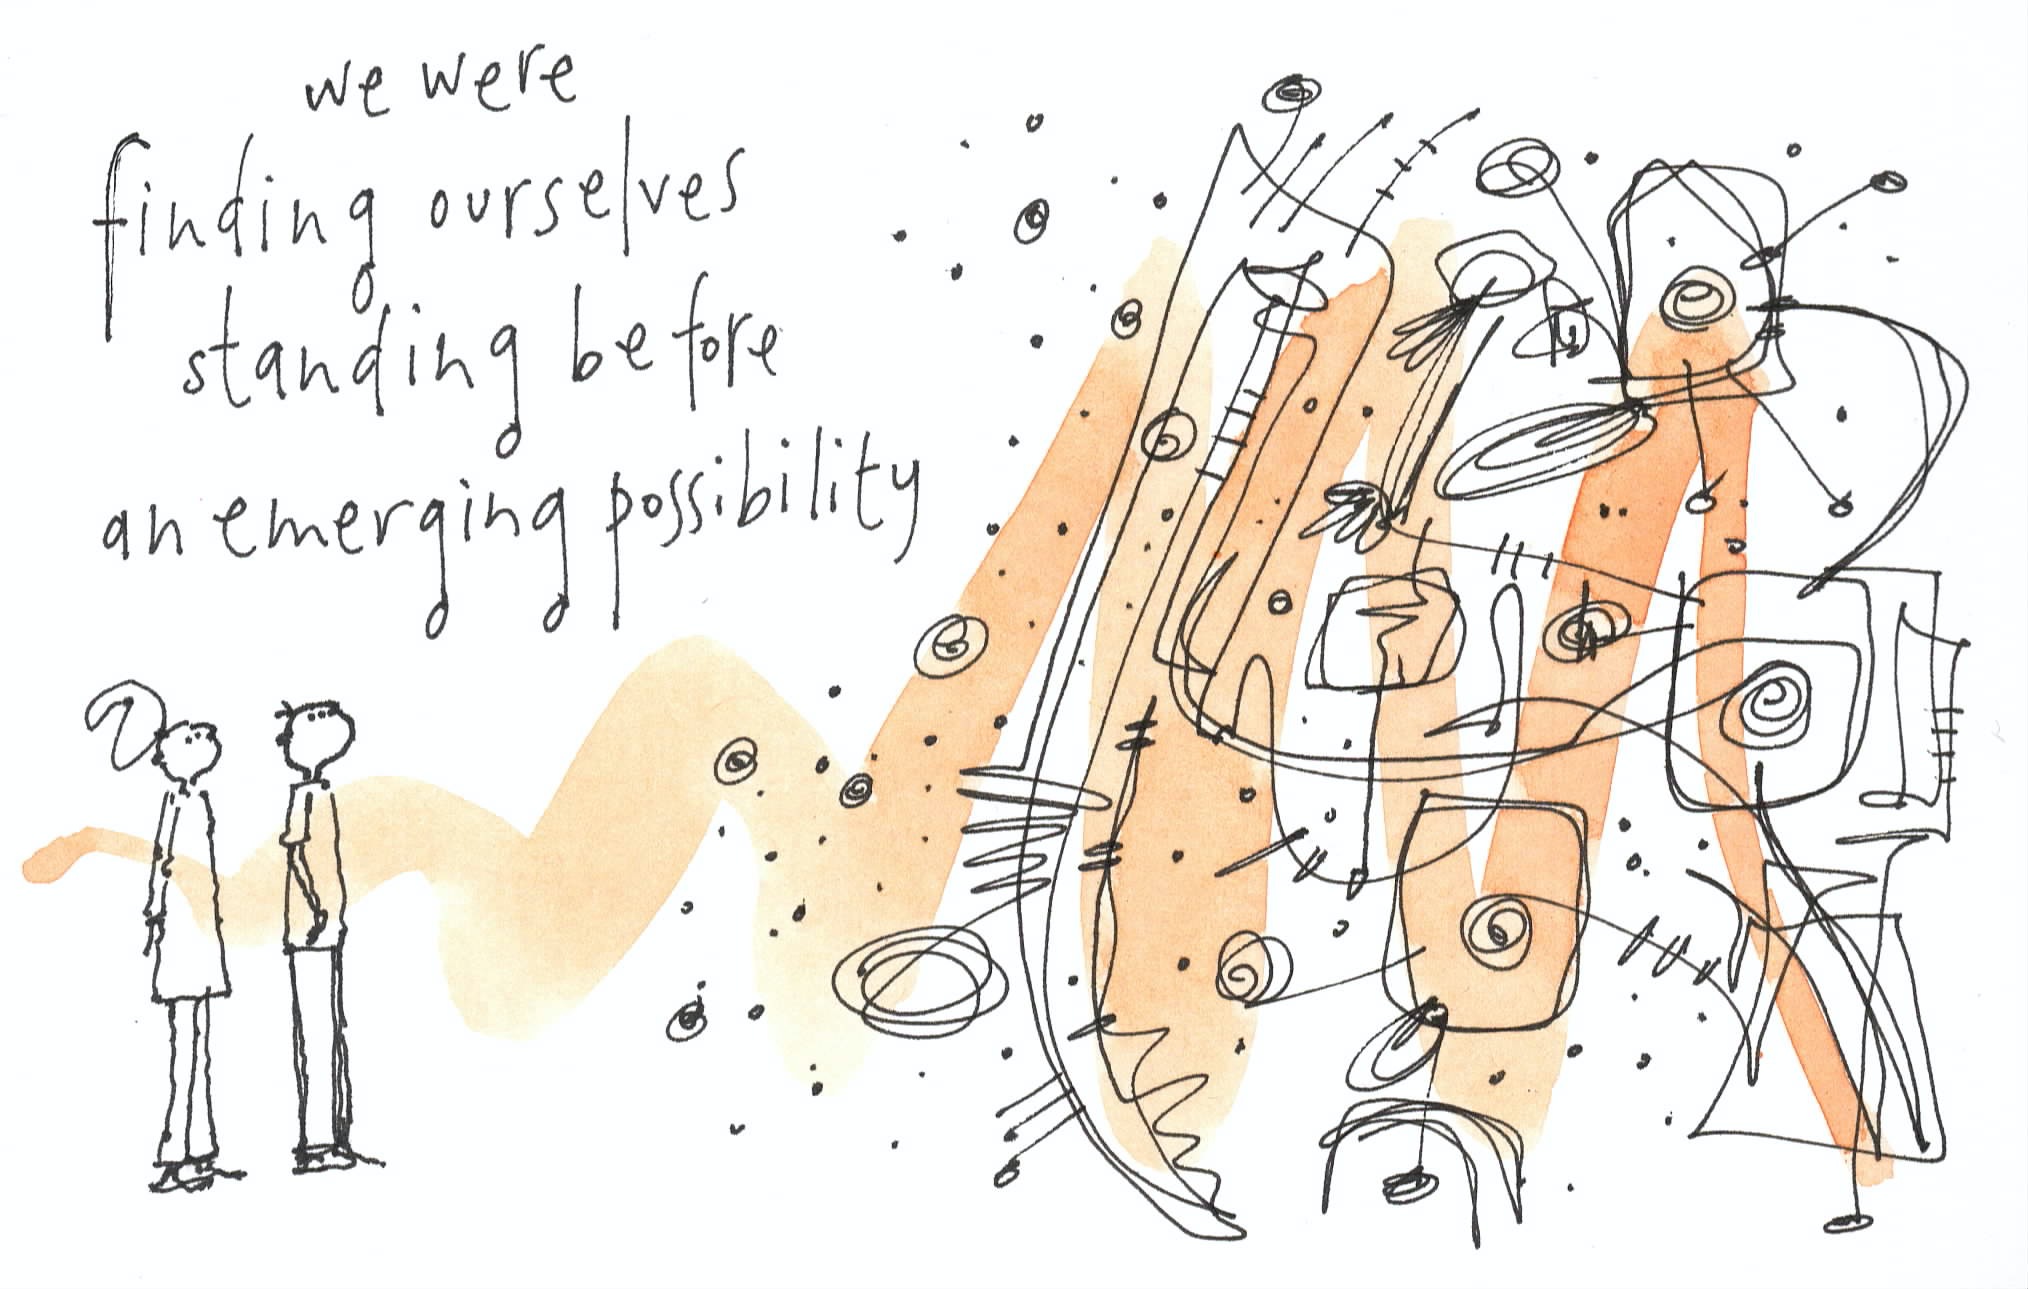 we were
finding ourselves
standing before
an emerging possibility